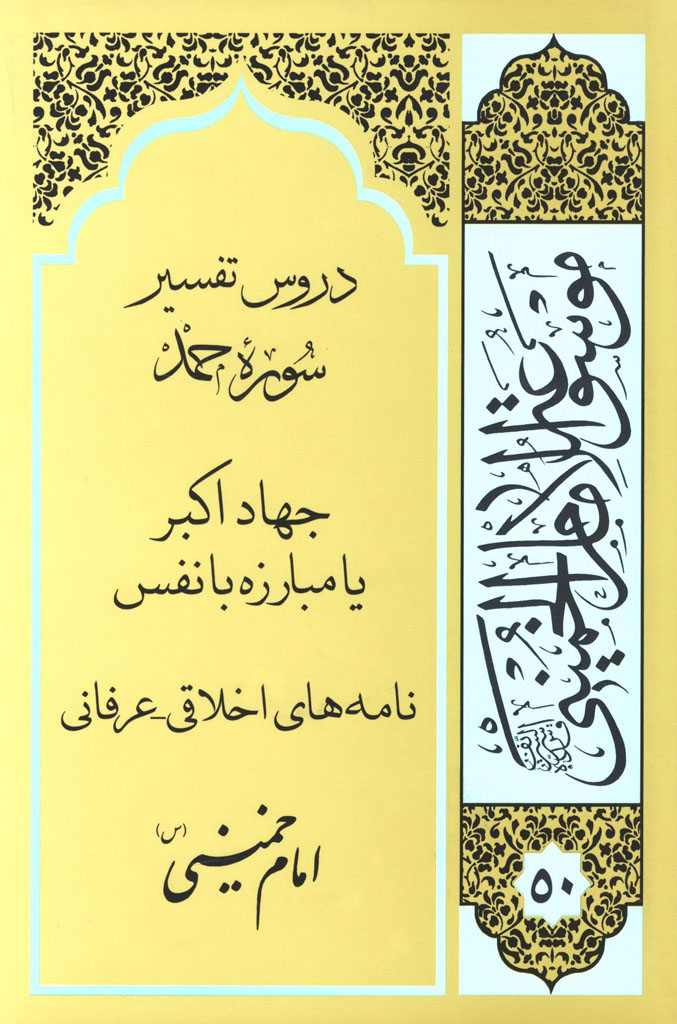 دروس تفسیر
سورهٔ حمد
جهاد اکبر
یا مبارزه با نفس
نامه‌های اخلاقی ـ عرفانی
امام خمینی (س)
موسوعة الإمام الخمیني
۵۰